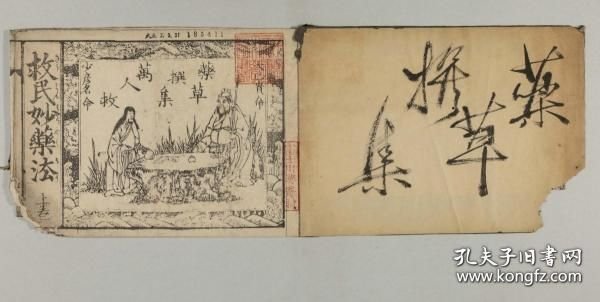 藥草
撰集
藥草
撰集
萬人救
少彦名命
救民妙藥法
185411
孔夫子旧书网
www.kongfz.com